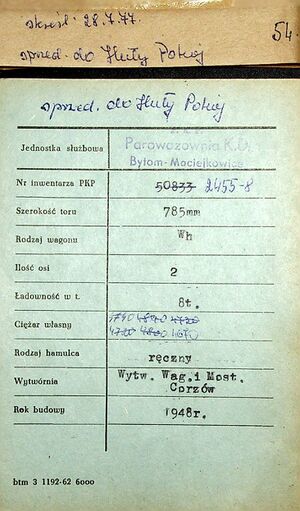 skreśl: 28.7.77.
54.
sprzed. do Huty Pokój
sprzed. do Huty Pokój
Jednostka służbowa
Parowozownia K.D.
Bytom-Maciejkowice
Nr inwentarza PKP 50833 2455-8
Szerokość toru 785mm
Rodzaj wagonu Wh
Ilość osi 2
Ładowność w t. 8t.
Ciężar własny
4720 4800
Rodzaj hamulca ręczny
Wytwórnia Wytw. Wag.i Most.
Corzów
Rok budowy 1948r.
btm 3 1192-62 6000